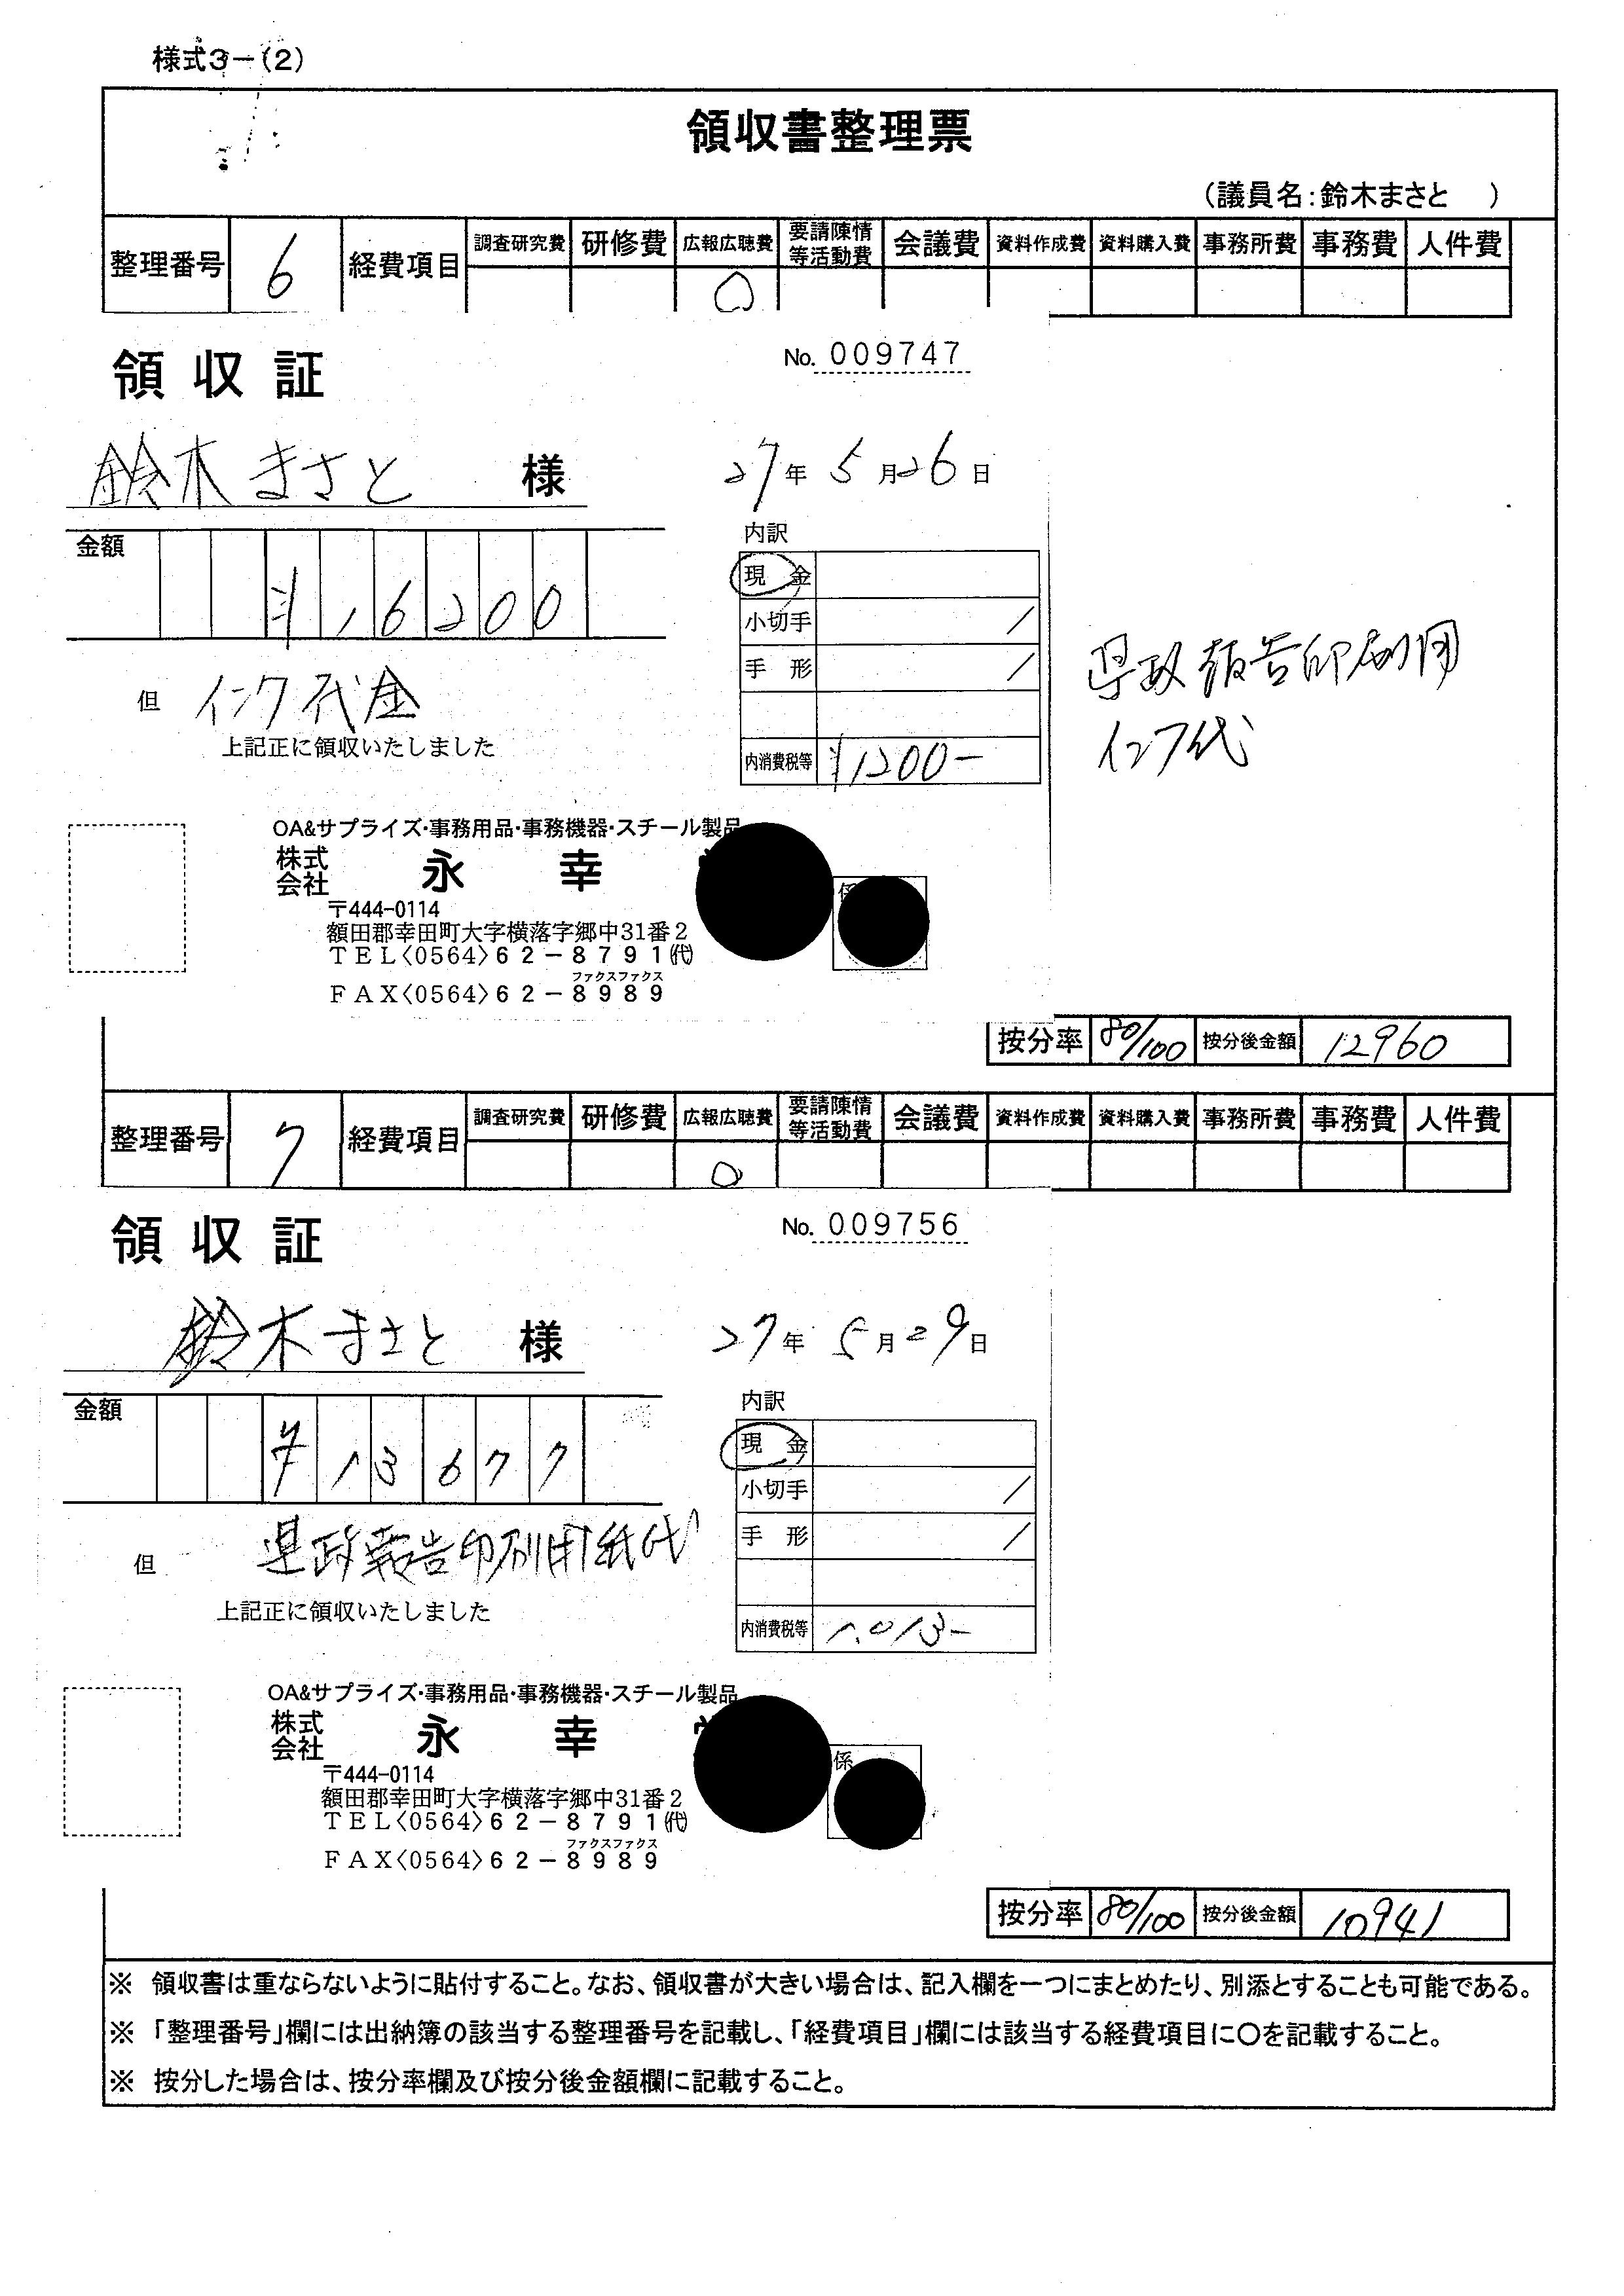 様式3－(2)
領収書整理票
(議員名:鈴木まさと　)
整理番号 6 経費項目 調査研究費 研修費 広報広聴費 要請陳情等活動費 会議費 資料作成費 資料購入費 事務所費 事務費 人件費
○
領収証 No. 009747
鈴木まさと 様 27年 5月26日
金額 ¥16200
内訳
現金
小切手 /
手形 /
内消費税等 ¥1200-
但 インク代金
上記正に領収いたしました
県政報告印刷用
インク代
OA&サプライズ・事務用品・事務機器・スチール製品
株式会社 永幸
〒444-0114
額田郡幸田町大字横落字郷中31番2
TEL〈0564〉62－8791㈹
ファクスファクス
FAX〈0564〉62－8989
係
按分率 80/100 按分後金額 12960
整理番号 7 経費項目 調査研究費 研修費 広報広聴費 要請陳情等活動費 会議費 資料作成費 資料購入費 事務所費 事務費 人件費
○
領収証 No. 009756
鈴木まさと 様 27年 5月29日
金額 ¥13677
内訳
現金
小切手 /
手形 /
内消費税等 1,013-
但 県政報告印刷用紙代
上記正に領収いたしました
OA&サプライズ・事務用品・事務機器・スチール製品
株式会社 永幸
〒444-0114
額田郡幸田町大字横落字郷中31番2
TEL〈0564〉62－8791㈹
ファクスファクス
FAX〈0564〉62－8989
係
按分率 80/100 按分後金額 10941
※ 領収書は重ならないように貼付すること。なお、領収書が大きい場合は、記入欄を一つにまとめたり、別添とすることも可能である。
※ 「整理番号」欄には出納簿の該当する整理番号を記載し、「経費項目」欄には該当する経費項目に○を記載すること。
※ 按分した場合は、按分率欄及び按分後金額欄に記載すること。